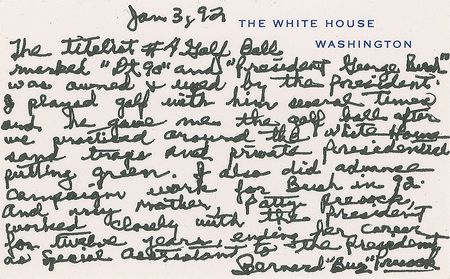 Jan 3, 92
THE WHITE HOUSE
WASHINGTON
The titelist #4 Golf Ball
marked "Pt 90" and "President George Bush"
was owned & used by the president.
I played golf with him several times
and he gave me the golf ball after
we practiced around the White House
sand traps and private Presidential
putting green. I also did advance
campaign work for Bush in 92.
And my mother, Patty Presock,
worked closely with the President
for twelve years, ending her career
as special assistant to the President
Bernard "Buz" Presock